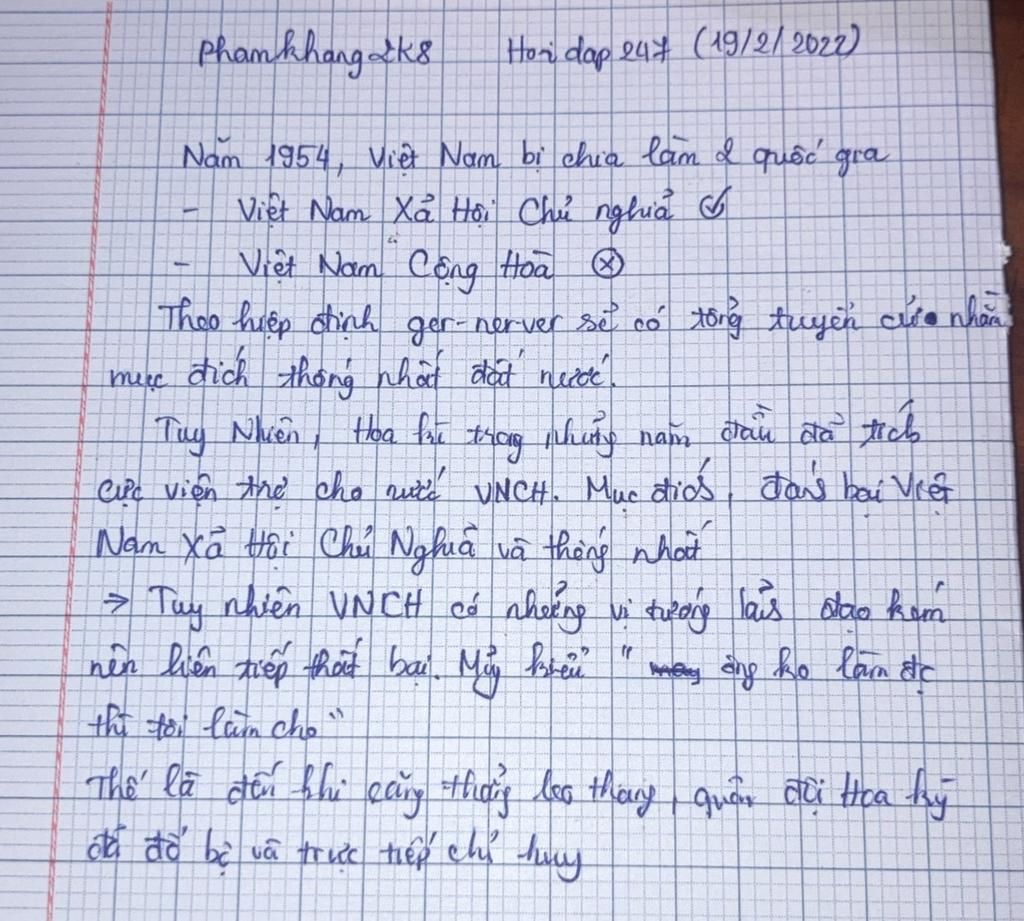 Phamkhang2k8 Hoi dap 247 (19/2/2022)
Năm 1954, Việt Nam bị chia làm 2 quốc gia
- Việt Nam Xả Hội Chủ nghiả
- Việt Nam Cộng Hoà
Theo hiệp định ger-nerver sẻ có tổng tuyển cử nhằm
mục đích thống nhất đất nước.
Tuy Nhiên, Hoa kì trong nhửng năm đầu đả tích
cực viện trợ cho nước VNCH. Mục đích, đánh bại Việt
Nam Xả Hội Chủ Nghiả và thống nhất
⇒ Tuy nhiên VNCH có nhửng vị tướng lảnh đạo kém
nên liên tiếp thất bại. Mỷ kiểu " ông ko làm đc
thì tôi làm cho"
Thế là đến khi căng thẳng leo thang, quân đội Hoa kỳ
đả đổ bộ và trực tiếp chỉ huy